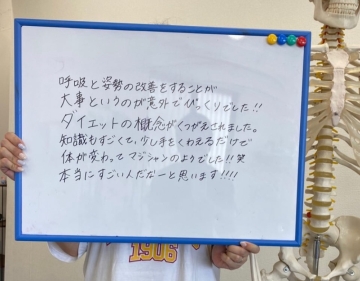 呼吸と姿勢の改善をすることが
大事というのが意外でびっくりでした!!
ダイエットの概念がくつがえされました。
知識もすごくて、少し手をくわえるだけで
体が変わってマジシャンのようでした!! 笑
本当にすごい人だなーと思います!!!!
1906